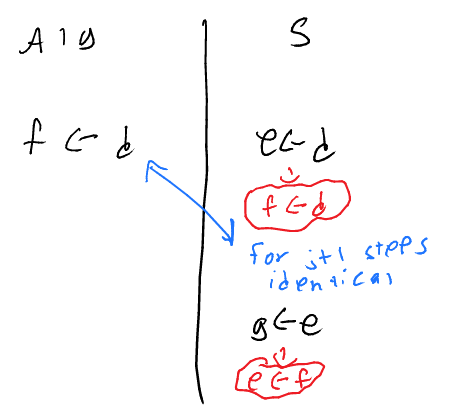 Alg S
f ← d e ← d
f ← d
for j+1 steps
identical
g ← e
e ← f